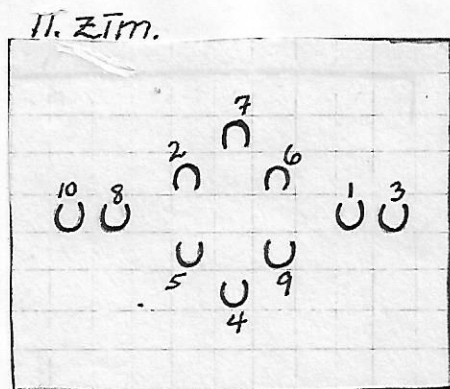 11. zīm.
7
2 6
10 8 1 3
5 9
4